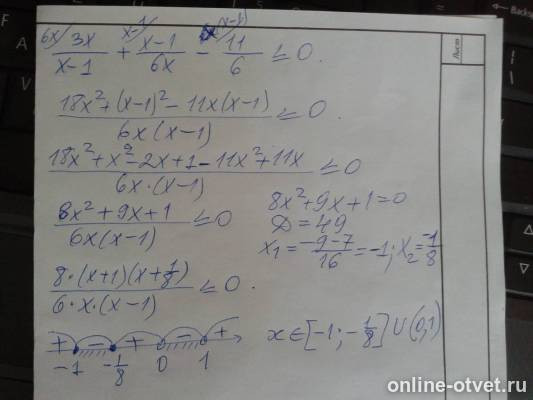 6x/ 3x/(x-1) + x-1/ (x-1)/(6x) - x(x-1)/ 11/6 ≤ 0.
(18x²+(x-1)²-11x(x-1))/(6x(x-1)) ≤ 0.
(18x²+x²-2x+1-11x²+11x)/(6x·(x-1)) ≤ 0
(8x²+9x+1)/(6x(x-1)) ≤ 0
8x²+9x+1=0
D=49
x₁=(-9-7)/16=-1; x₂=-1/8
(8·(x+1)(x+1/8))/(6·x·(x-1)) ≤ 0.
+ - + - +
-1 -1/8 0 1
x∈[-1;-1/8]∪(0,1)
Лист
Backsp
online-otvet.ru